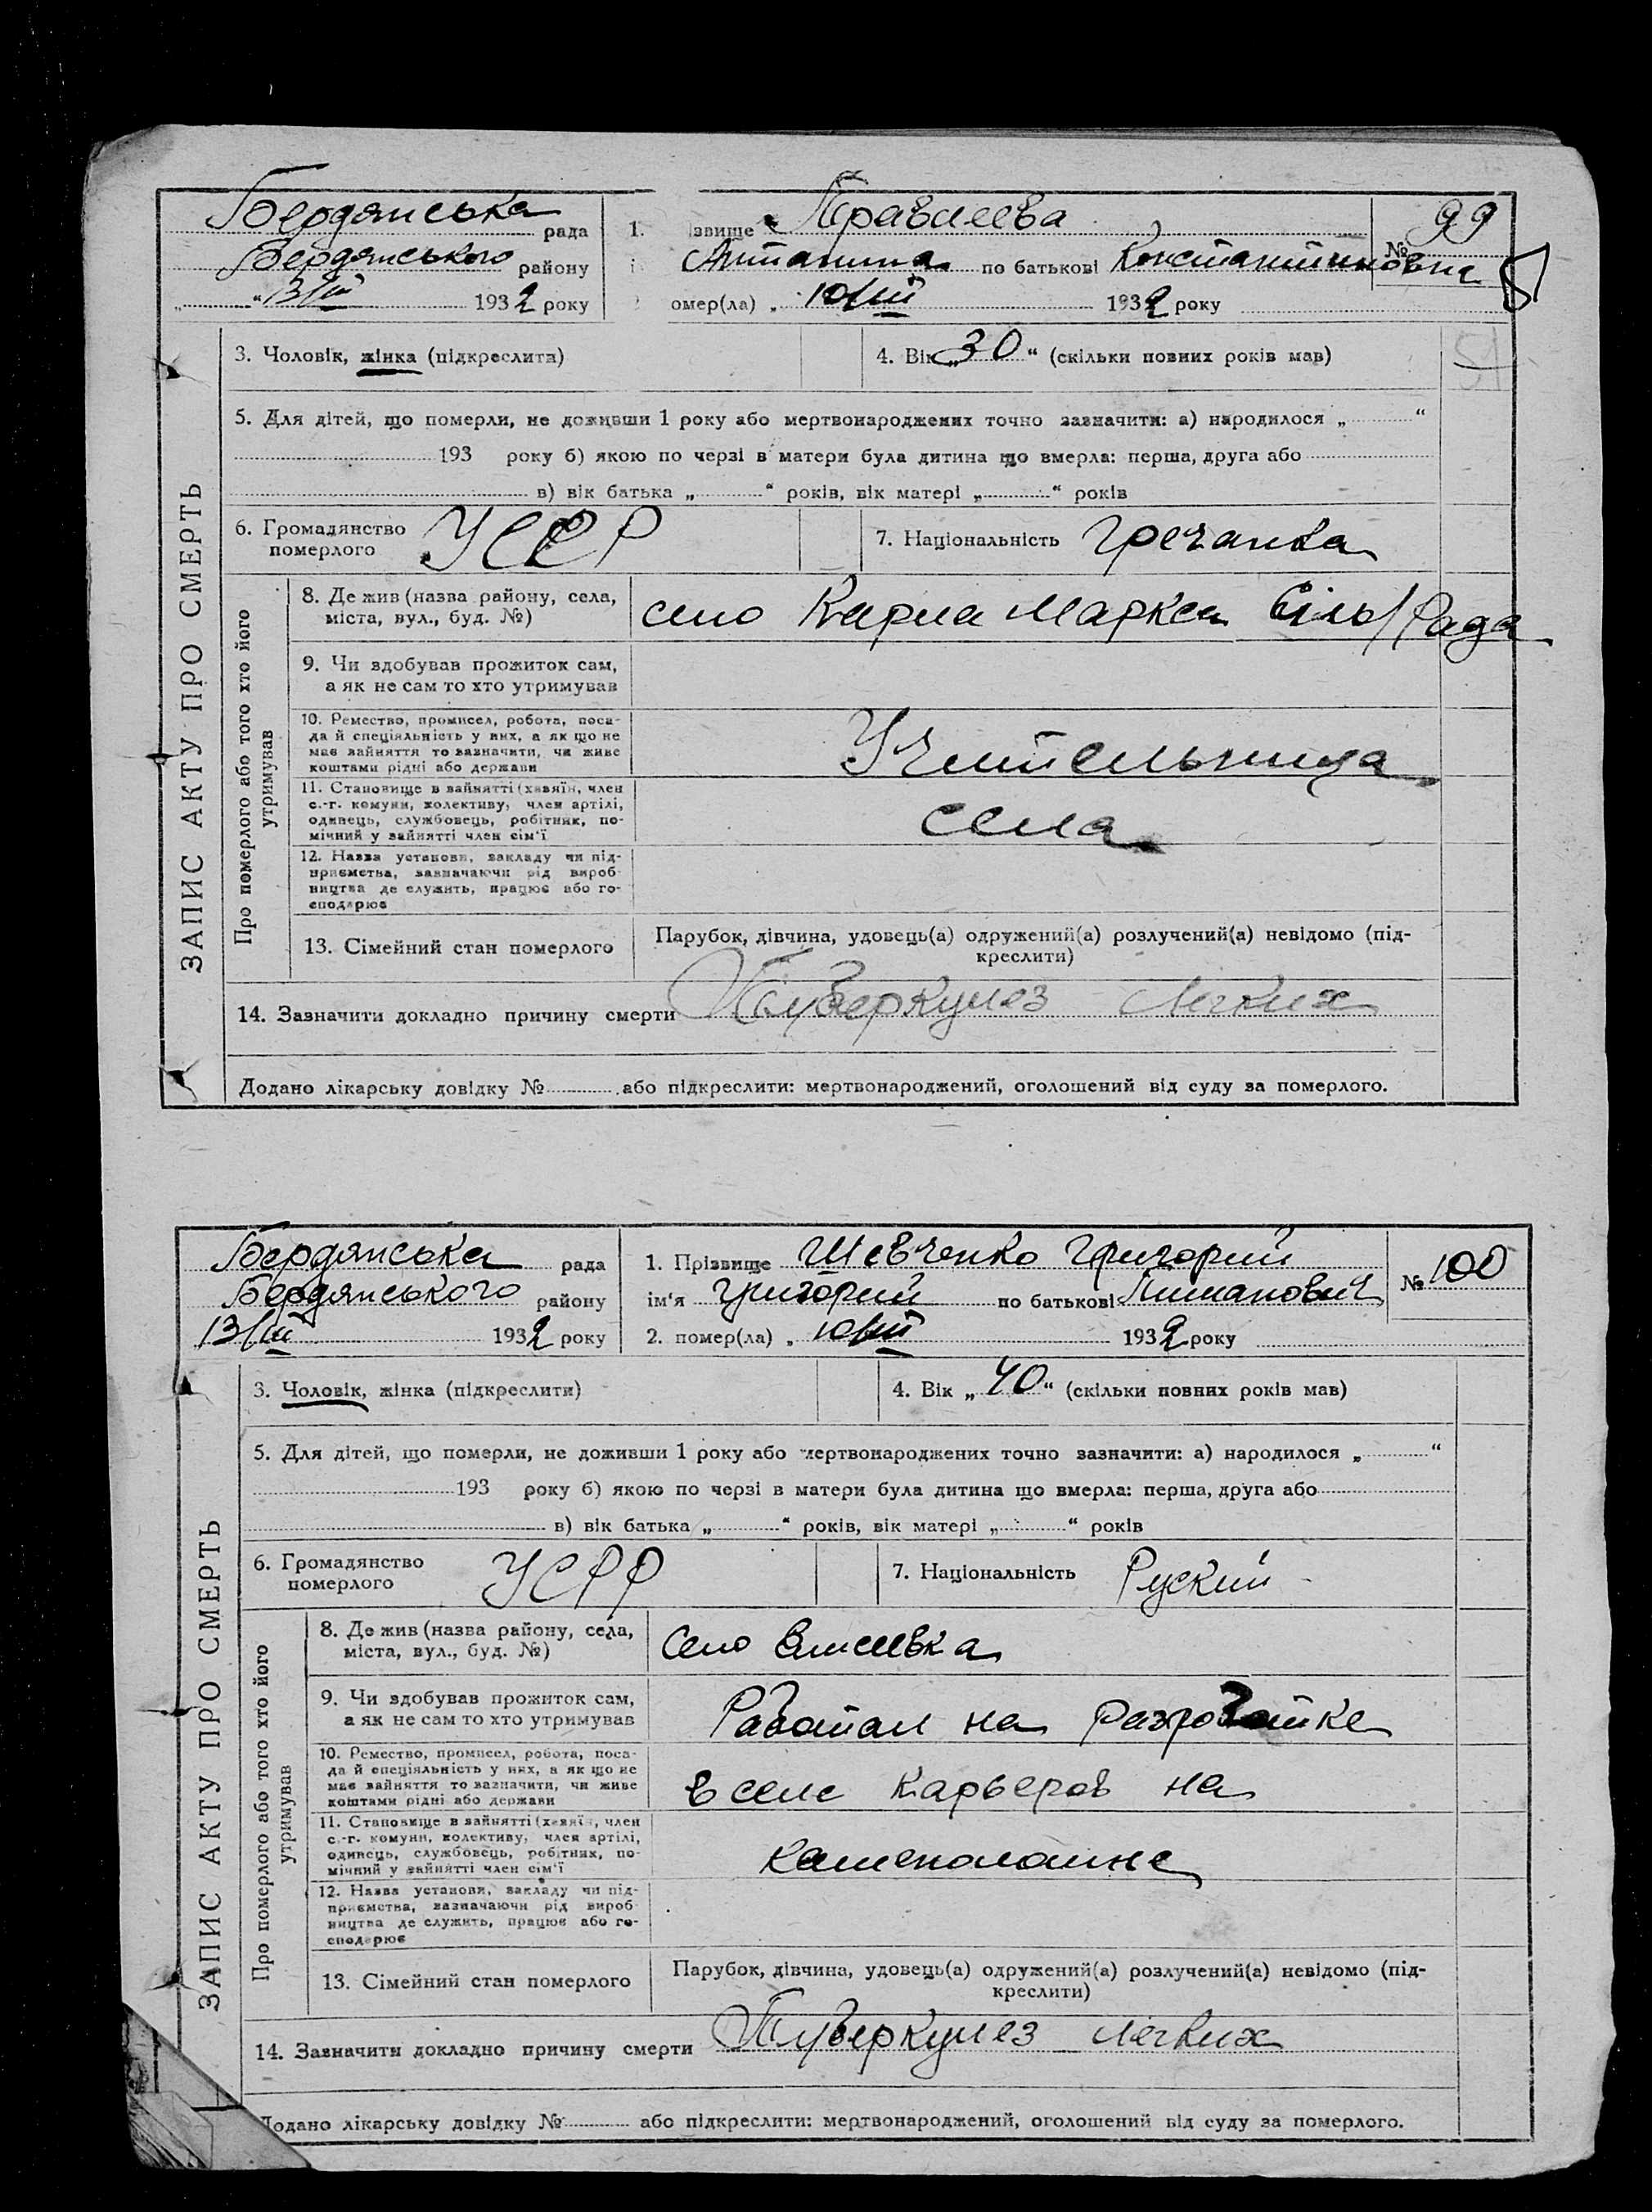 Бердянська рада 1. звище Правилева № 99
Бердянського району Антанина по батькові Константиновна
" 13/III 1932 року омер(ла) „ 10/III 1932 року
3. Чоловік, жінка (підкреслити) 4. Вік „30“ (скільки повних років мав)
5. Для дітей, що померли, не доживши 1 року або мертвонароджених точно зазначити: а) народилося „ “
193 року б) якою по черзі в матери була дитина що вмерла: перша, друга або
в) вік батька „ “ років, вік матері „ “ років
6. Громадянство
померлого
УССР
7. Національність гречанка
ЗАПИС АКТУ ПРО СМЕРТЬ
Про померлого або того хто його
утримував
8. Де жив (назва району, села,
міста, вул., буд. №)
село Карла Маркса Сіль/Рада
9. Чи здобував прожиток сам,
а як не сам то хто утримував
10. Ремество, промисел, робота, поса-
да й спеціяльність у них, а як що не
має зайняття то зазначити, чи живе
коштами рідні або держави
Учительница
11. Становище в зайнятті (хазяїн, член
с.-г. комуни, колективу, член артілі,
одинець, службовець, робітник, по-
мічний у зайнятті член сім'ї
села
12. Назва установи, закладу чи під-
приємства, зазначаючи рід вироб-
ництва де служить, працює або го-
сподарює
13. Сімейний стан померлого
Парубок, дівчина, удовець(а) одружений(а) розлучений(а) невідомо (під-
креслити)
14. Зазначити докладно причину смерти Туберкулез Легких
Додано лікарську довідку № або підкреслити: мертвонароджений, оголошений від суду за померлого.
Бердянська рада 1. Прізвище Шевченко Григорий № 100
Бердянського району ім'я Григорий по батькові
13/III 1932 року 2. помер(ла) „ 10/III 1932 року
3. Чоловік, жінка (підкреслити) 4. Вік „40“ (скільки повних років мав)
5. Для дітей, що померли, не доживши 1 року або мертвонароджених точно зазначити: а) народилося „ “
193 року б) якою по черзі в матери була дитина що вмерла: перша, друга або
в) вік батька „ “ років, вік матері „ “ років
6. Громадянство
померлого
УСРР
7. Національність Руский
ЗАПИС АКТУ ПРО СМЕРТЬ
Про померлого або того хто його
утримував
8. Де жив (назва району, села,
міста, вул., буд. №)
село Елисеевка
9. Чи здобував прожиток сам,
а як не сам то хто утримував
Работал на разработке
10. Ремество, промисел, робота, поса-
да й спеціяльність у них, а як що не
має зайняття то зазначити, чи живе
коштами рідні або держави
в селе карьеров на
11. Становище в зайнятті (хазяїн, член
с.-г. комуни, колективу, член артілі,
одинець, службовець, робітник, по-
мічний у зайнятті член сім'ї
12. Назва установи, закладу чи під-
приємства, зазначаючи рід вироб-
ництва де служить, працює або го-
сподарює
13. Сімейний стан померлого
Парубок, дівчина, удовець(а) одружений(а) розлучений(а) невідомо (під-
креслити)
14. Зазначити докладно причину смерти Туберкулез легких
Додано лікарську довідку № або підкреслити: мертвонароджений, оголошений від суду за померлого.